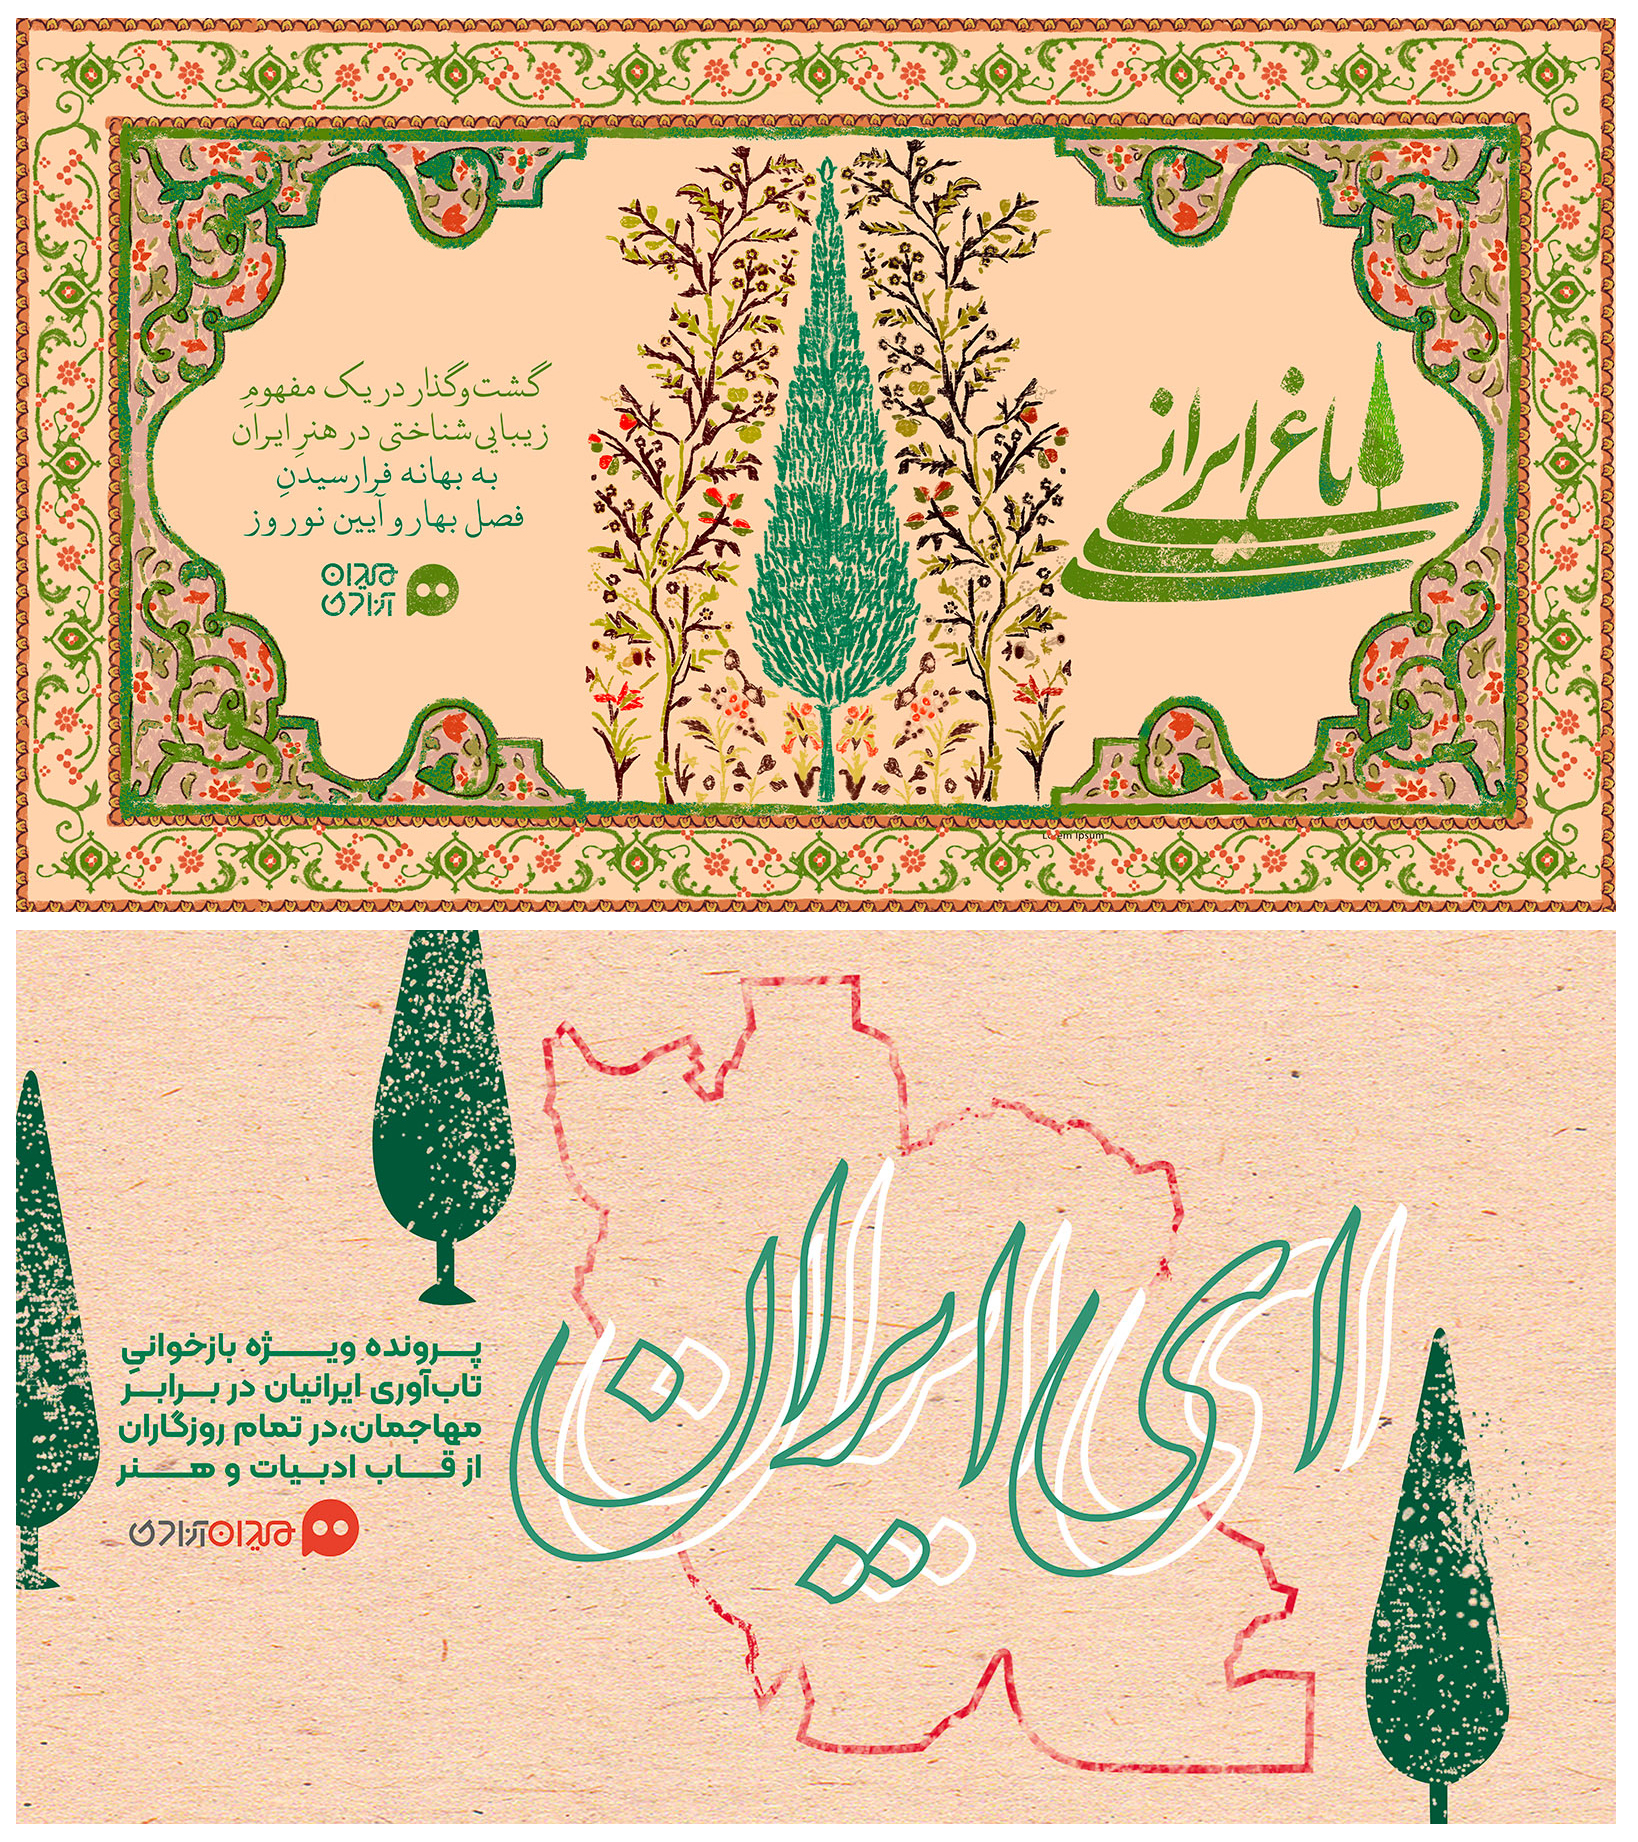 باغ ایرانی
گشت‌وگذار در یک مفهومِ
زیبایی‌شناختی در هنرِ ایران
به بهانه فرارسیدنِ
فصل بهار و آیین نوروز
میدان
آزادی
Lorem Ipsum
ای ایران
پرونده ویژه بازخوانیِ
تاب‌آوری ایرانیان در برابر
مهاجمان،در تمام روزگاران
از قاب ادبیات و هنر
میدان آزادی